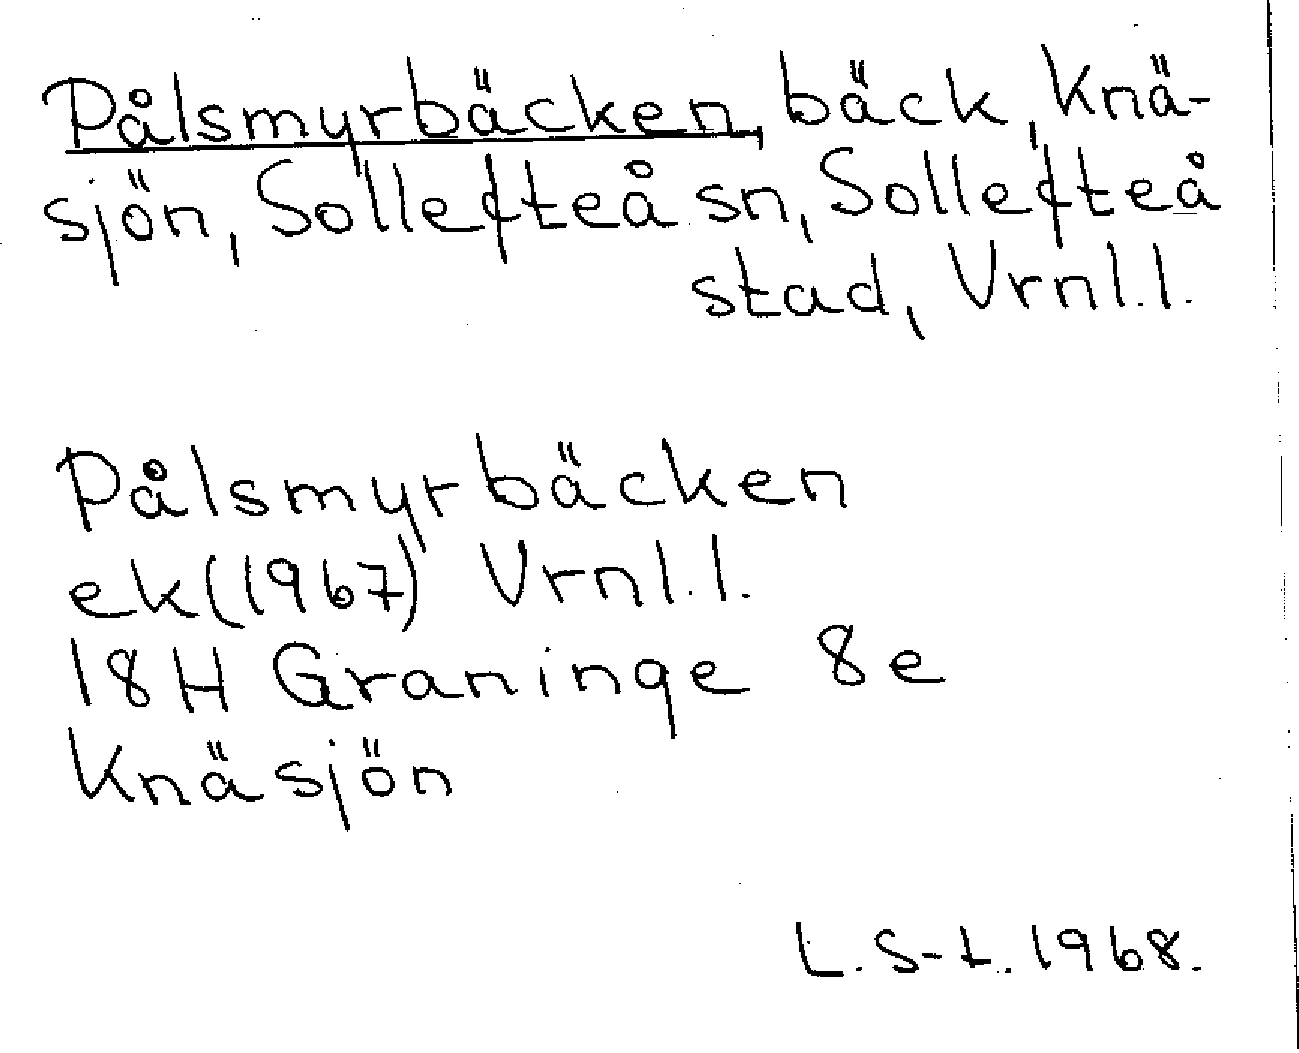 Pålsmyrbäcken, bäck, Knä-
sjön, Sollefteå sn, Sollefteå
stad, Vrnl.l.
Pålsmyrbäcken
ek(1967) Vrnl.l.
18H Graninge 8e
Knäsjön
L. S-t. 1968.